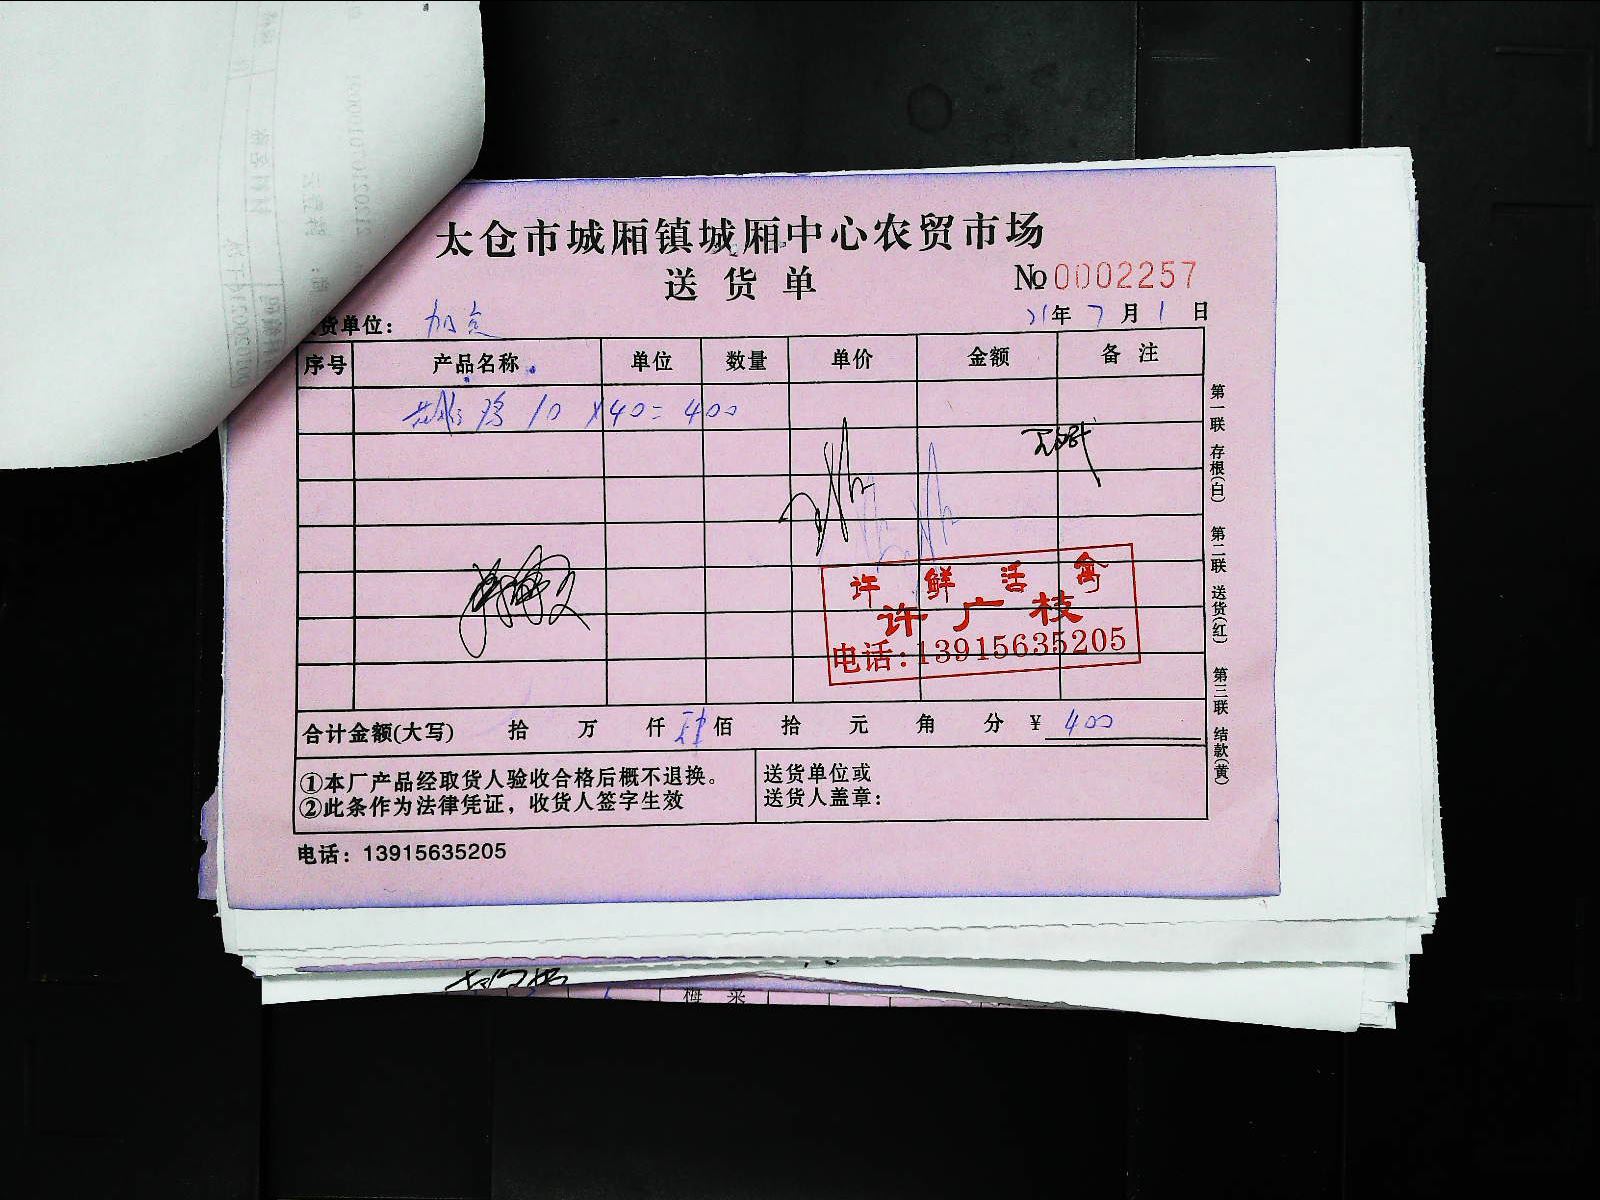 太仓市城厢镇城厢中心农贸市场
送货单
№0002257
货单位：
21年7月1日
序号 产品名称 单位 数量 单价 金额 备注
鸡 10 ×40=400
许鲜活禽
许广枝
电话:13915635205
合计金额(大写) 拾 万 仟 肆佰 拾 元 角 分 ¥ 400
①本厂产品经取货人验收合格后概不退换。
②此条作为法律凭证，收货人签字生效
送货单位或
送货人盖章：
电话：13915635205
第一联 存根(白) 第二联 送货(红) 第三联 结款(黄)